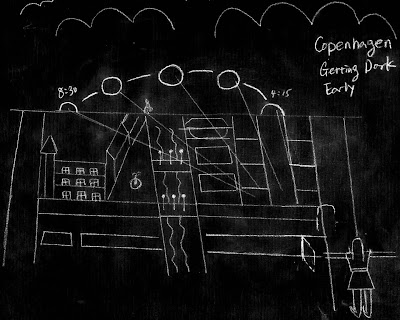 Copenhagen
Getting Dark
Early
8:30
4:15